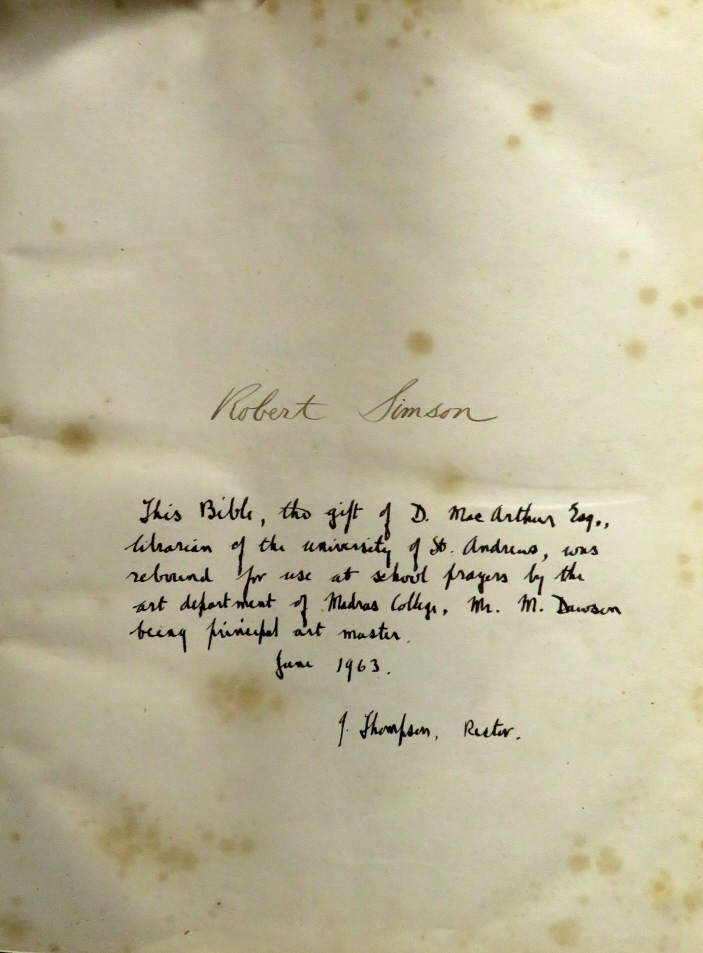 Robert Simson
This Bible, the gift of D. MacArthur Esq.,
librarian of the university of St. Andrews, was
rebound for use at school prayers by the
art department of Madras College, Mr. M. Dawson
being principal art master.
June 1963.
J. Thompson, Rector.